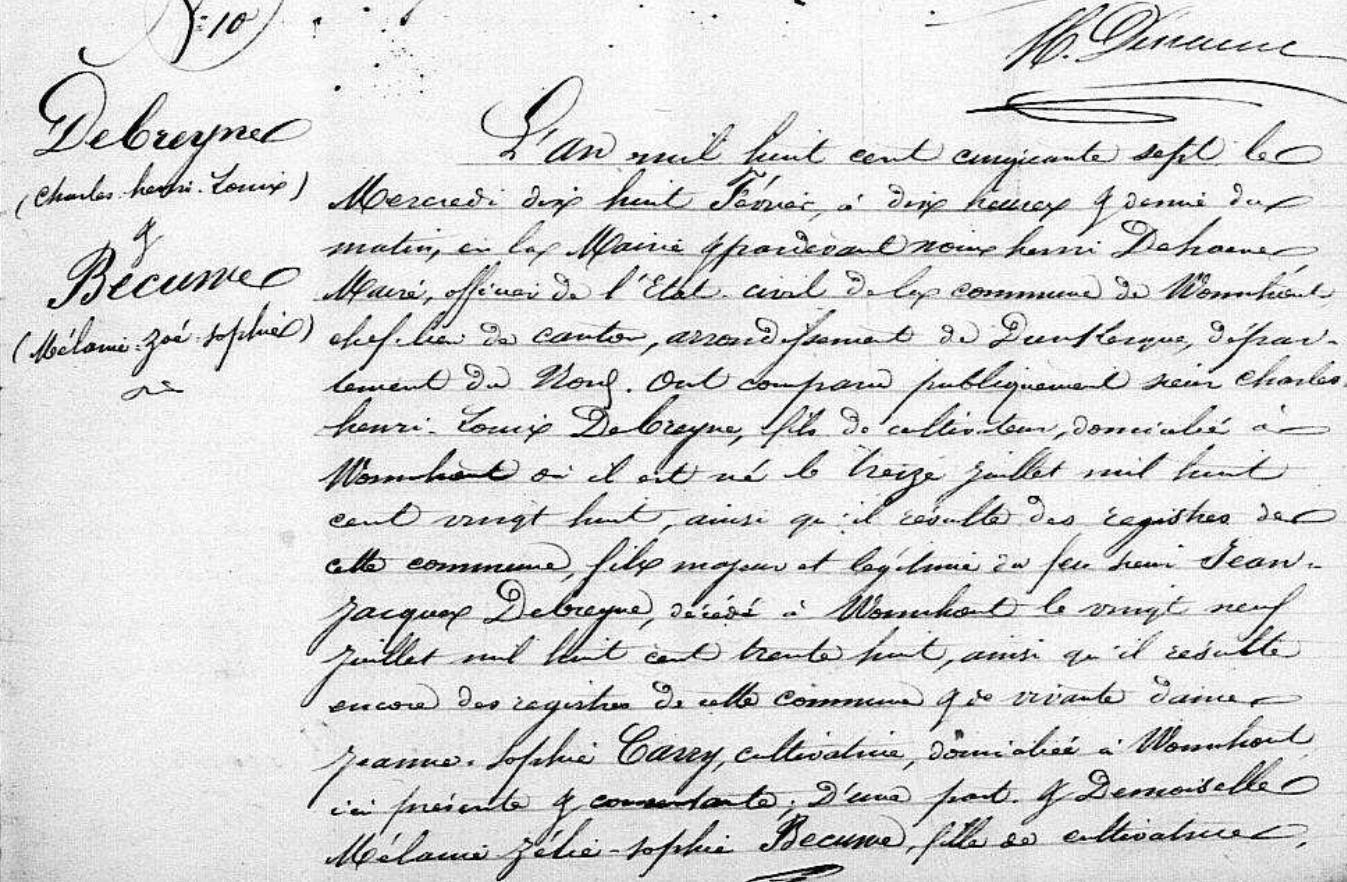 N° 10
H. Dehaene
Debreyne
(Charles henri Louis)
&
Becuwe
(Mélanie Zoé Sophie)
L'an mil huit cent cinquante sept le
Mercredi dix huit Février, à dix heures & demie du
matin, en la Mairie & pardevant nous henri Dehaene
Maire, officier de l'Etat civil de la commune de Wormhout
chef-lieu de canton, arrondissement de Dunkerque, dépar-
tement du Nord. Ont comparu publiquement sieur Charles
henri-Louis Debreyne, fils de cultivateur, domicilié à
Wormhout où il est né le treize Juillet mil huit
cent vingt huit, ainsi qu'il résulte des registres de
cette commune, fils majeur et légitime du feu sieur Jean-
Jacques Debreyne, décédé à Wormhout le vingt neuf
Juillet mil huit cent trente huit, ainsi qu'il résulte
encore des registres de cette commune & de vivante dame
Jeanne-Sophie Carry, cultivatrice, domiciliée à Wormhout
ici présente & consentante; D'une part. & Demoiselle
Mélanie Zélie-Sophie Becuwe, fille de cultivatrice,